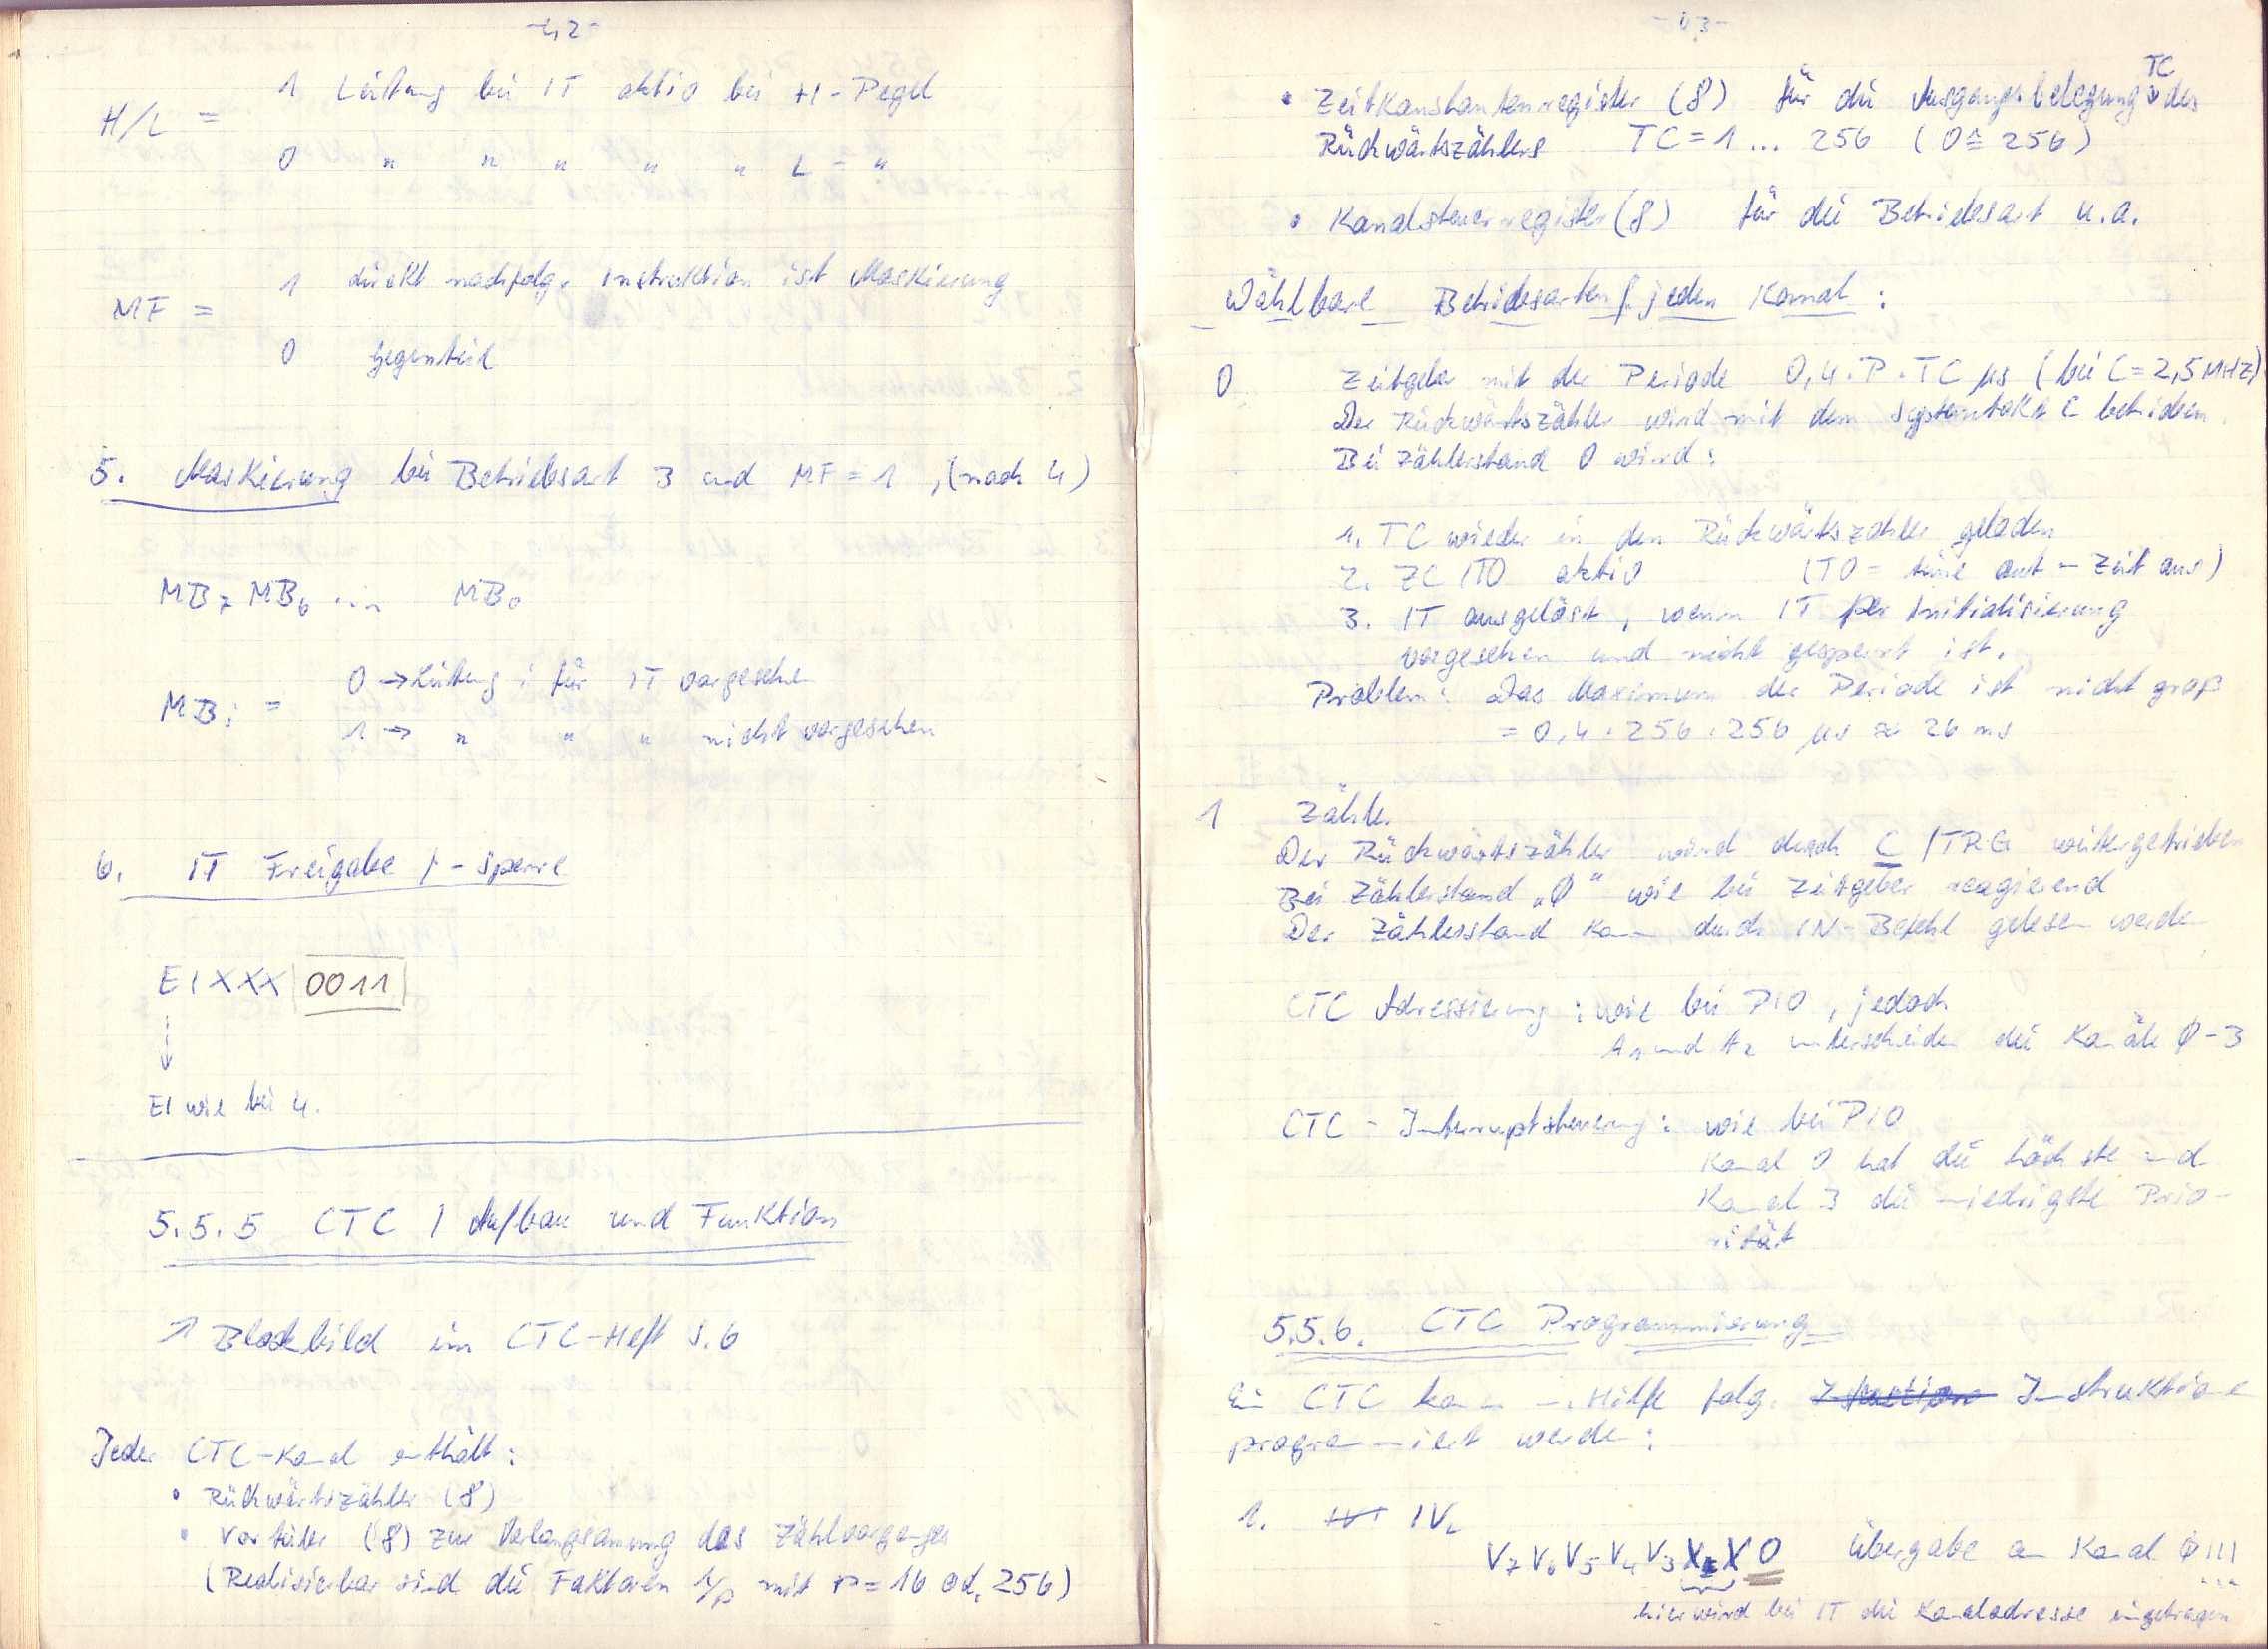 - 42 -
1 Leitung bei IT aktiv bei H-Pegel
H/L =
0 " " " " " L - "
1 direkt nachfolg. Instruktion ist Maskierung
MF =
0 Gegenteil
5. Maskierung bei Betriebsart 3 und MF = 1, (nach 4)
MB7 MB6 ... MB0
0 → Leitung i für IT vorgesehen
MBi =
1 → " " " nicht vorgesehen
6. IT Freigabe / -sperre
EI XXX 0011
EI wie bei 4.
5.5.5 CTC / Aufbau und Funktion
↗ Blockbild im CTC-Heft S. 6
Jeder CTC-Kanal enthält:
• Rückwärtszähler (8)
• Vorteiler (8) zur Verlangsamung des Zählvorganges
(Realisierbar sind die Faktoren 1/p mit P = 16 od. 256)
- 43 -
• Zeitkonstantenregister (8) für die Ausgangsbelegung TC des
Rückwärtszählers TC = 1 ... 256 (0 ≙ 256)
• Kanalsteuerregister (8) für die Betriebsart u.a.
Wählbare Betriebsarten f. jeden Kanal:
0 Zeitgeber mit der Periode 0,4 · P · TC µs (bei C = 2,5 MHz)
Der Rückwärtszähler wird mit dem Systemtakt C betrieben.
Bei Zählerstand 0 wird:
1. TC wieder in den Rückwärtszähler geladen
2. ZC/TO aktiv (TO = time out - Zeit aus)
3. IT ausgelöst, wenn IT per Initialisierung
vorgesehen und nicht gesperrt ist.
Problem: Das Maximum der Periode ist nicht groß
= 0,4 · 256 · 256 µs ≈ 26 ms
1 Zähler
Der Rückwärtszähler wird durch C/TRG weitergetrieben
Bei Zählerstand „Ø" wie bei Zeitgeber reagierend
Der Zählerstand kann durch IN-Befehl gelesen werden
CTC Adressierung: wie bei PIO, jedoch
A1 und A2 unterscheiden die Kanäle Ø-3
CTC - Interruptsteuerung: wie bei PIO
Kanal 0 hat die höchste und
Kanal 3 die niedrigste Prio-
rität
5.5.6. CTC Programmierung
Ein CTC kann m. Hilfe folg. Instruktionen
programmiert werden:
1. IVL
V7 V6 V5 V4 V3 X X 0 Übergabe an Kanal Ø!!!
hier wird bei IT die Kanaladresse eingetragen